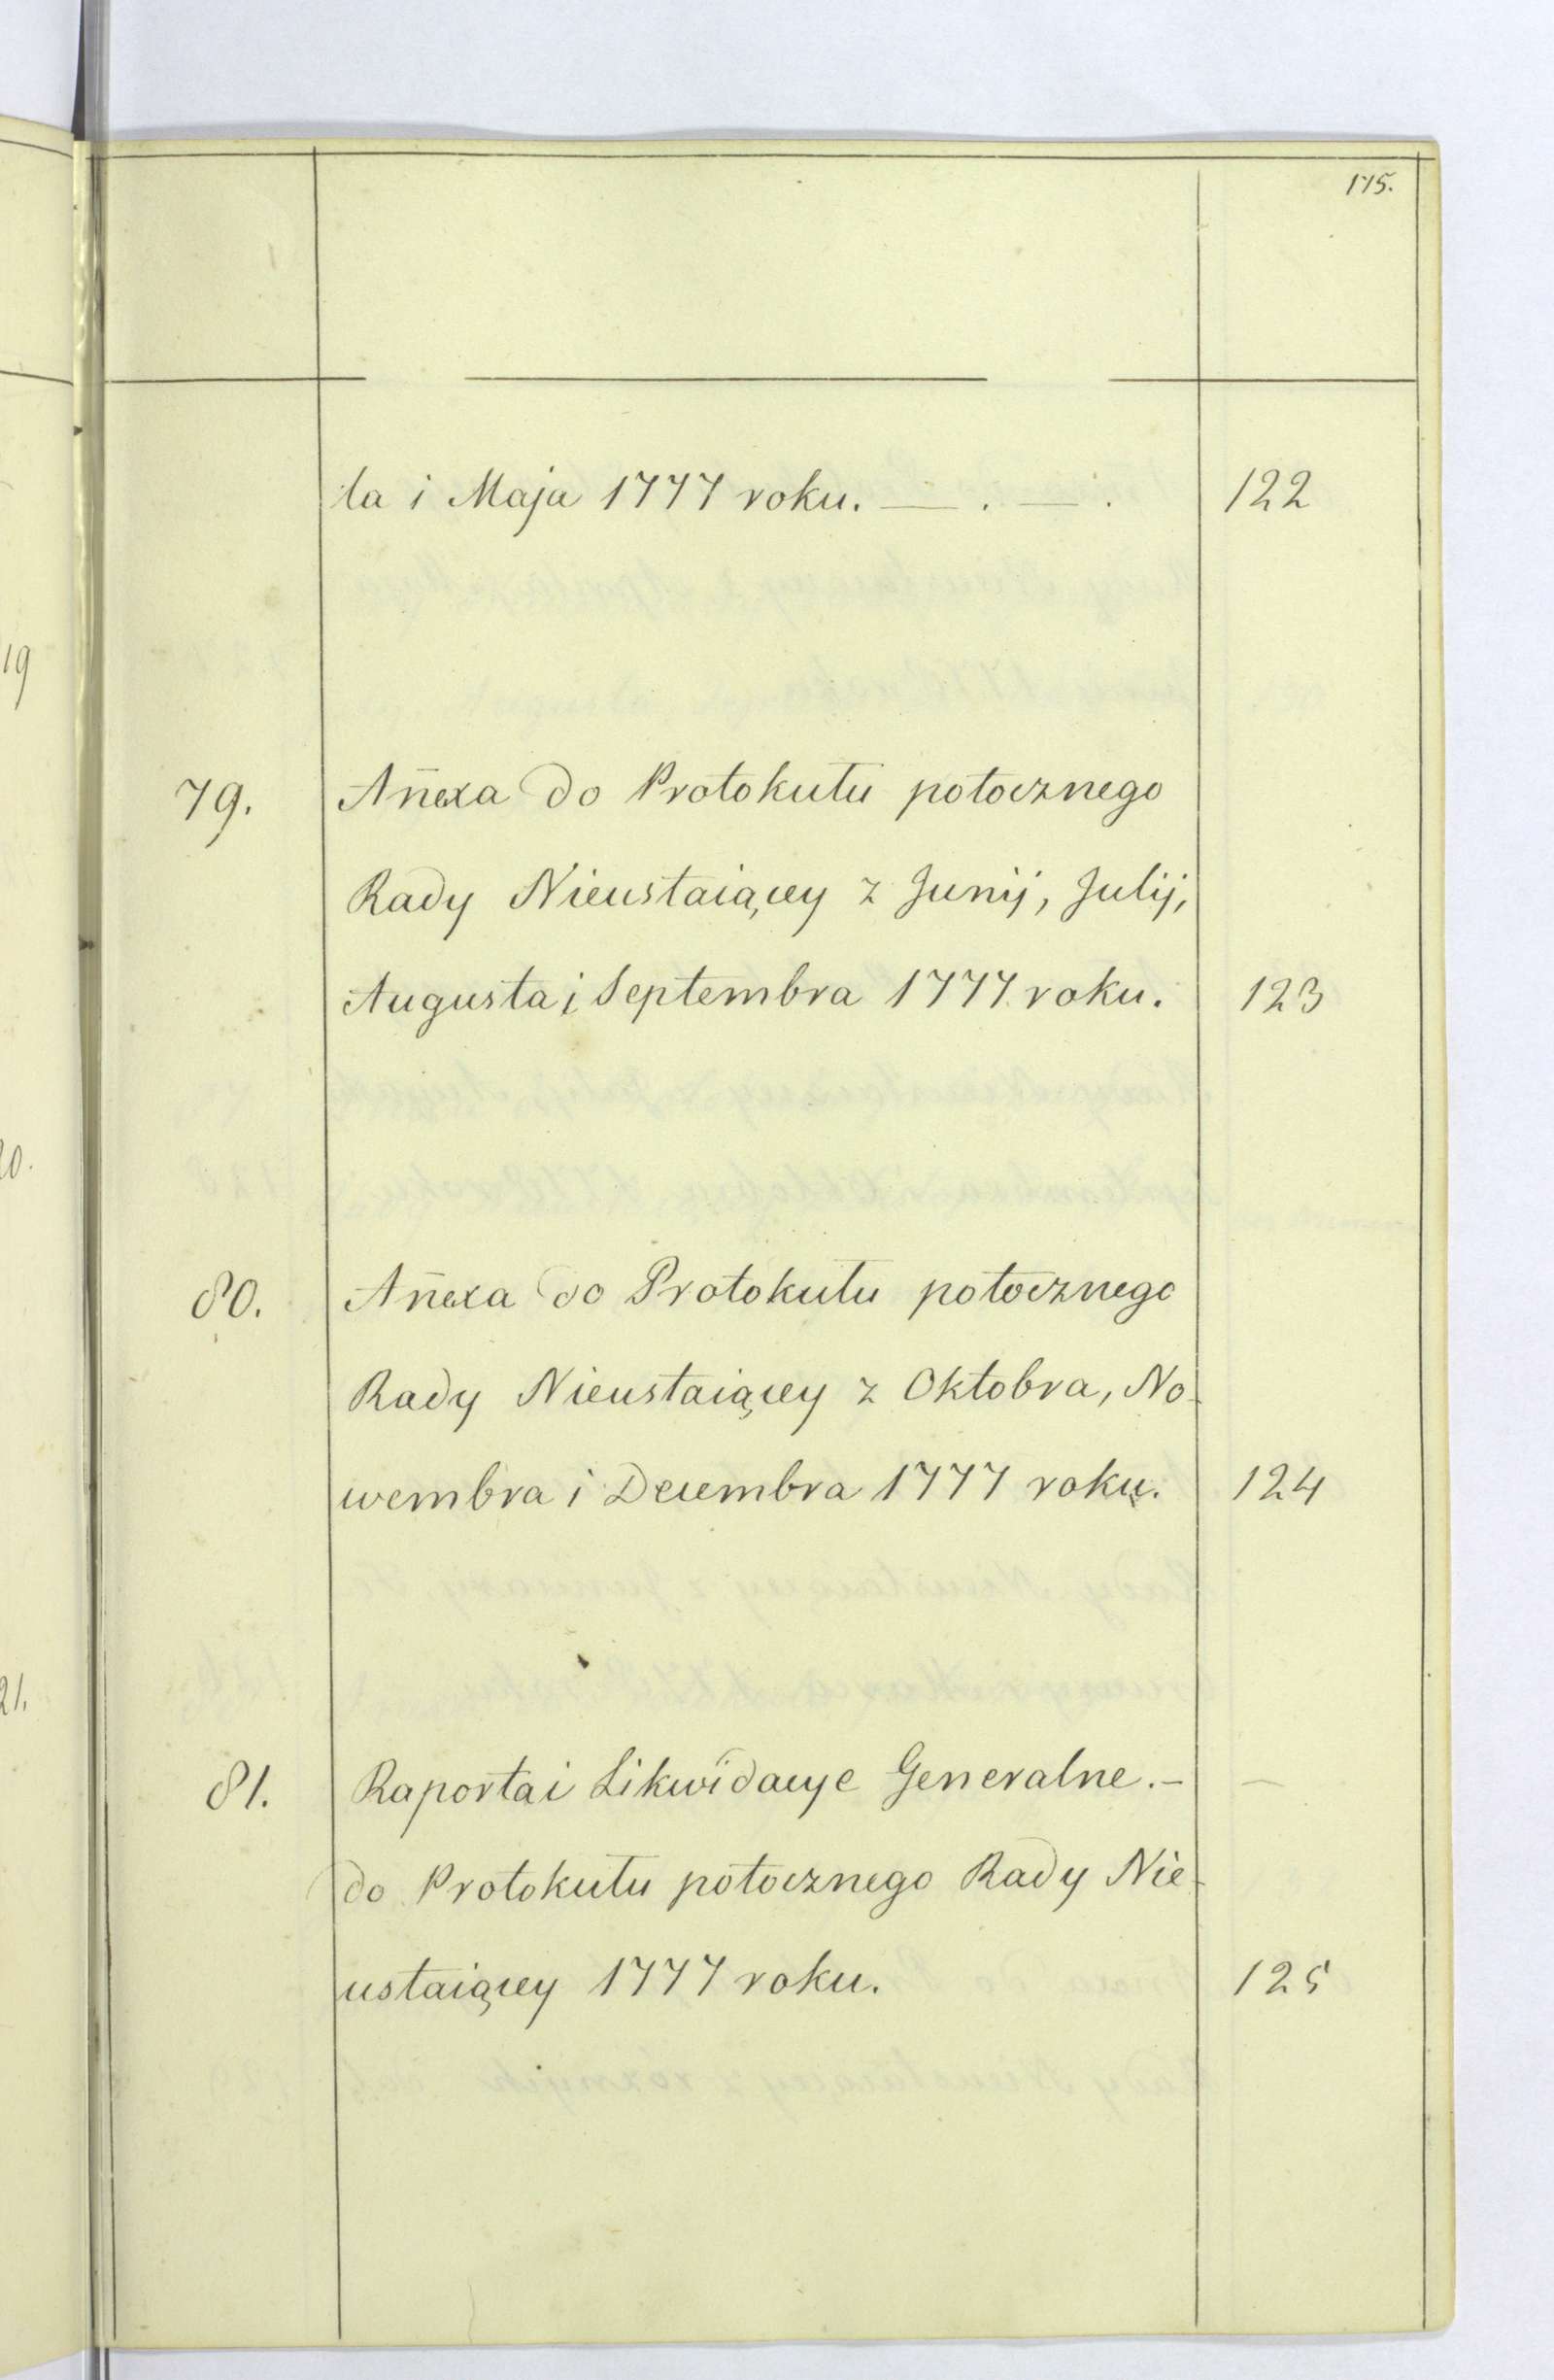 175.
la i Maja 1777 roku. — . — . 122
79. Añexa do Protokułu potocznego
Rady Nieustaiącey z Junij, Julij,
Augusta i Septembra 1777 roku. 123
80. Añexa do Protokułu potocznego
Rady Nieustaiącey z Oktobra, No-
wembra i Decembra 1777 roku. 124
81. Raporta i Likwidacye Generalne. –
do Protokułu potocznego Rady Nie-
ustaiącey 1777 roku. 125
19
20.
21.